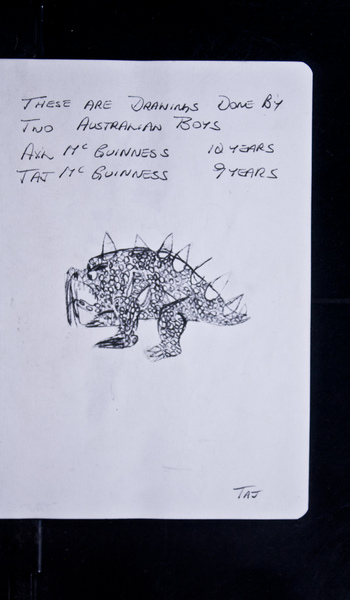 THESE ARE DRAWINGS DONE BY
TWO AUSTRALIAN BOYS
MC GUINNESS 10 YEARS
TAJ MC GUINNESS 9 YEARS
TAJ